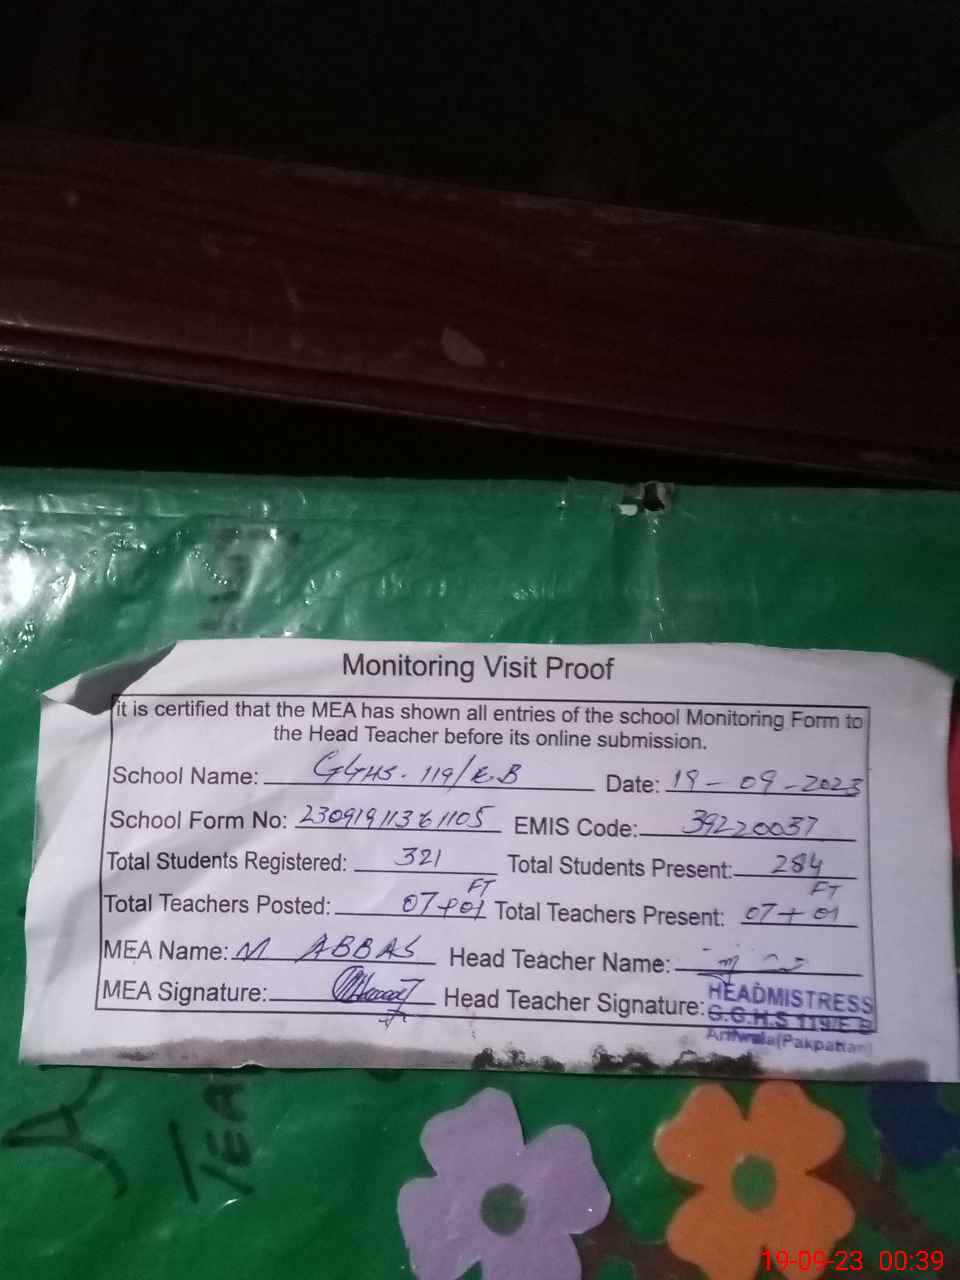 Monitoring Visit Proof
it is certified that the MEA has shown all entries of the school Monitoring Form to
the Head Teacher before its online submission.
School Name: GGHS. 119/E.B Date: 19-09-2023
School Form No: EMIS Code: 39220037
Total Students Registered: 321 Total Students Present: 284
Total Teachers Posted: 07+01 FT Total Teachers Present: 07+01 FT
MEA Name: M ABBAS Head Teacher Name:
MEA Signature: Head Teacher Signature:
HEADMISTRESS
G.G.H.S 119/E.B
Arifwala(Pakpattan)
TEA
19-09-23 00:39